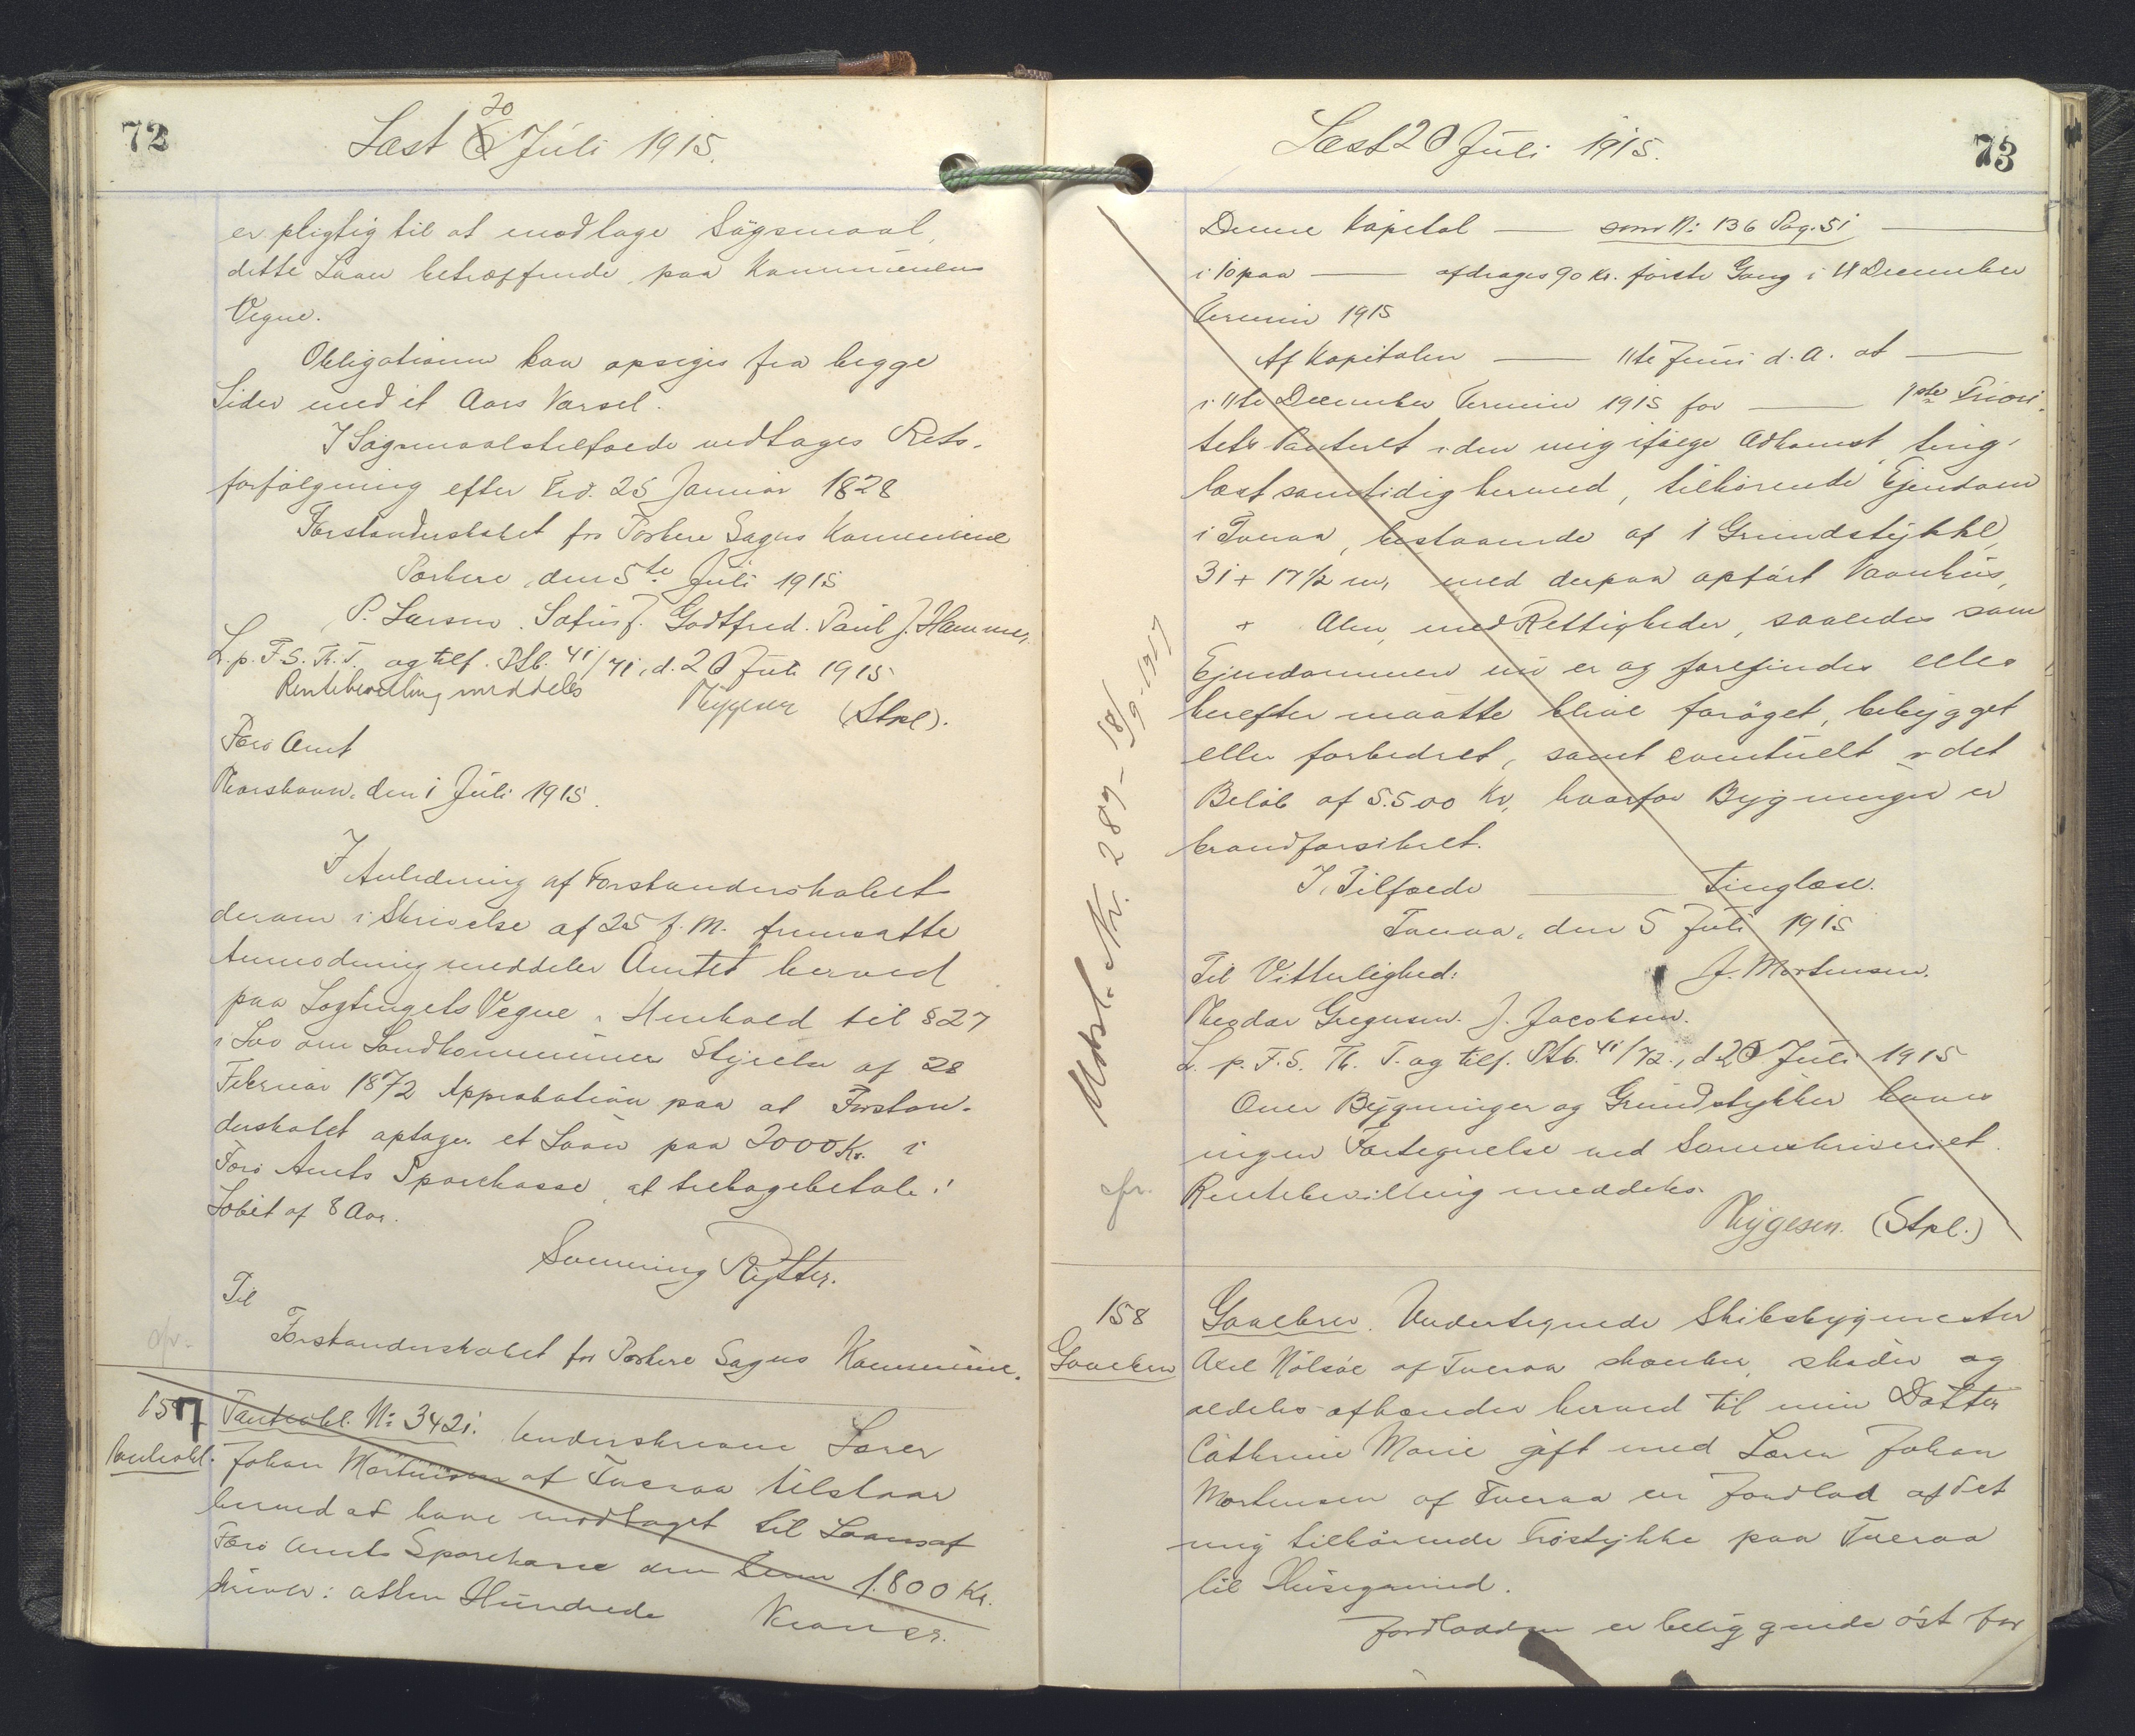 72
Læst 20 Juli 1915.
er pligtig til at modtage Søgsmaal,
dette Laan betræffende, paa Kommunens
Vegne.
Obligationen kan opsiges fra begge
Sider med et Aars Varsel.
I Søgsmaalstilfælde vedtages Rets-
forfølgning efter Frd. 25 Januar 1828
Forstanderskabet for Porkere Sogns Kommune
Porkere, den 5te Juli 1915
P. Larsen. Sofus J. Godtfred. Poul J. Hammer,
L. p. F. S. Th. T. og tilf. Ptb. 41/71, d. 20 Juli 1915
Rentebevilling meddeles
Thygesen (Stpl).
Færø Amt
Thorshavn, den 1 Juli 1915.
I Anledning af Forstanderskabet
derom i Skrivelse af 25 f. M. fremsatte
Anmodning meddeler Amtet herved
paa Lagtingets Vegne i Henhold til § 27
i Lov om Landkommuners Styrelse af 28
Februar 1872 Approbation paa at Forstan-
derskabet optager et Laan paa 2000 Kr. i
Færø Amts Sparekasse, at tilbagebetale i
Løbet af 8 Aar.
Svenning Rytter.
Til
Forstanderskabet for Porkere Sogns Kommune.
cfr.
157
Panteobl. No 3421. Underskrevne Lærer
Panteobl.
Johan Mortensen af Tveraa tilstaar
herved at have modtaget til Laans af
Færø Amts Sparekasse den Sum 1.800 Kr.
skriver: atten Hundrede Kroner.
73
Læst 20 Juli 1915.
Denne Kapital — som No 136 Pag. 51 —
i 10 paa — afdrages 90 Kr. første Gang i 11 December
Termin 1915
Af Kapitalen — 11te Juni d. A. at —
i 11te December Termin 1915 for — 1ste Priori-
tets Panteret i den mig ifølge Adkomst, ting-
læst samtidig hermed, tilhørende Ejendom
i Tveraa, bestaaende af 1 Grundstykke,
31 + 17 1/2 m, med derpaa opført Vaanhus,
+ Alen, med Rettigheder, saaledes som
Ejendommen nu er og forefindes eller
herefter maatte blive forøget, bebygget
eller forbedret, samt eventuelt i det
Beløb af 5.500 Kr, hvorfor Bygninger er
brandforsikret.
I Tilfælde — Tinglæse.
Tveraa, den 5 Juli 1915
Til Vitterlighed: J. Mortensen.
Theodor Gregersen. J. Jacobsen.
L. p. F. S. Th. T. og tilf. Ptb. 41/72., d 20 Juli 1915
Over Bygninger og Grundstykker haves
ingen Fortegnelse ved Sorenskriveriet.
Rentebevilling meddeles.
Thygesen. (Stpl.)
Udsl. Nr. 287 - 18/9-1917
cfr.
158
Gavebrev. Undertegnede Skibsbygmester
Gavebrev
Axel Nolsøe af Tveraa skænker, skøder og
aldeles afhænder herved til min Datter
Cathrine Marie gift med Lærer Johan
Mortensen af Tveraa en Jordlod af det
mig tilhørende Trøstykke paa Tveraa
til Husegrund.
Jordlodden er beliggende øst for